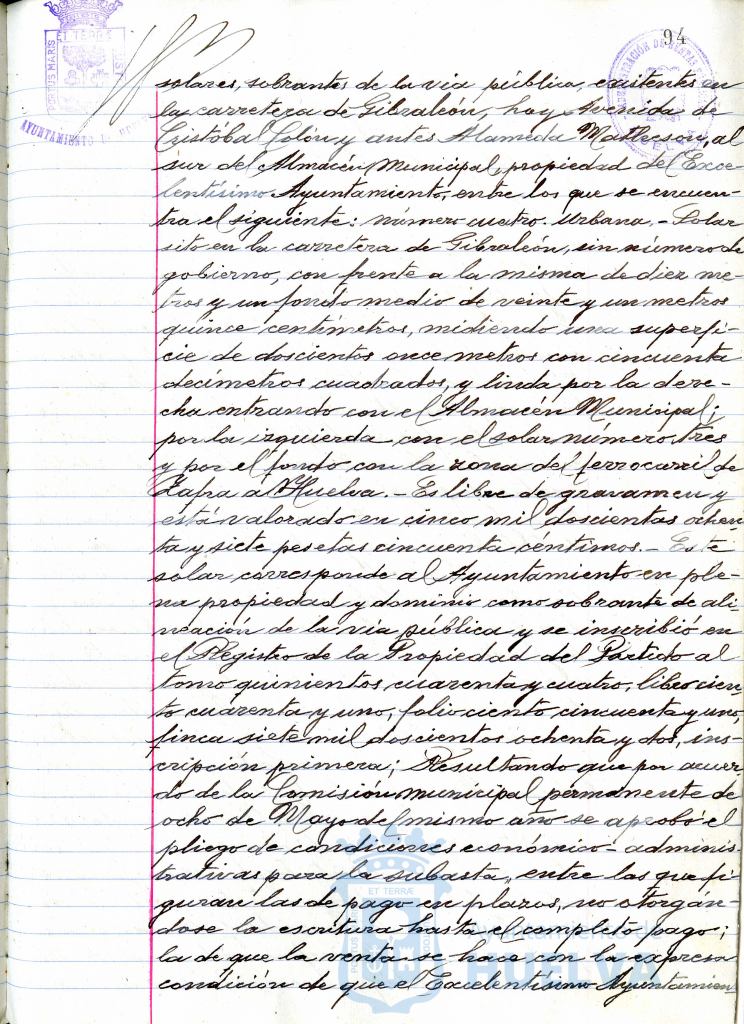 94
solares, sobrantes de la via pública, exitentes en
la carretera de Gibraleón, hoy Avenida de
Cristóbal Colón y antes Alameda Matherson, al
sur del Almacén Municipal, propiedad del Exce-
lentísimo Ayuntamiento, entre los que se encuen-
tra el siguiente: número cuatro. Urbana.- Solar
sito en la carretera de Gibraleón, sin número de
gobierno, con frente a la misma de diez me-
tros y un fondo medio de veinte y un metros
quince centímetros, midiendo una superfi-
cie de doscientos once metros con cincuenta
decímetros cuadrados, y linda por la dere-
cha entrando con el Almacén Municipal;
por la izquierda con el solar número tres
y por el fondo con la zona del ferrocarril de
Zafra a Huelva.- Es libre de gravamen y
está valorado en cinco mil doscientas ochen-
ta y siete pesetas cincuenta céntimos.- Este
solar corresponde al Ayuntamiento en ple-
na propiedad y dominio como sobrante de ali-
neación de la via pública y se inscribió en
el Registro de la Propiedad del Partido al
tomo quinientos cuarenta y cuatro, libro cien-
to cuarenta y uno, folio ciento cincuenta y uno,
finca siete mil doscientos ochenta y dos, ins-
cripción primera; Resultando que por acuer-
do de la Comisión municipal permanente de
ocho de Mayo del mismo año se aprobó el
pliego de condiciones económico-adminis-
trativas para la subasta, entre las que fi-
guran las de pago en plazos, no otorgán-
dose la escritura hasta el completo pago;
la de que la venta se hace con la expresa
condición de que el Excelentísimo Ayuntamien-
PORTUS MARIS
ET TERRE
AYUNTAMIENTO DE
ET TERRÆ
Ayuntamiento de
HUELVA